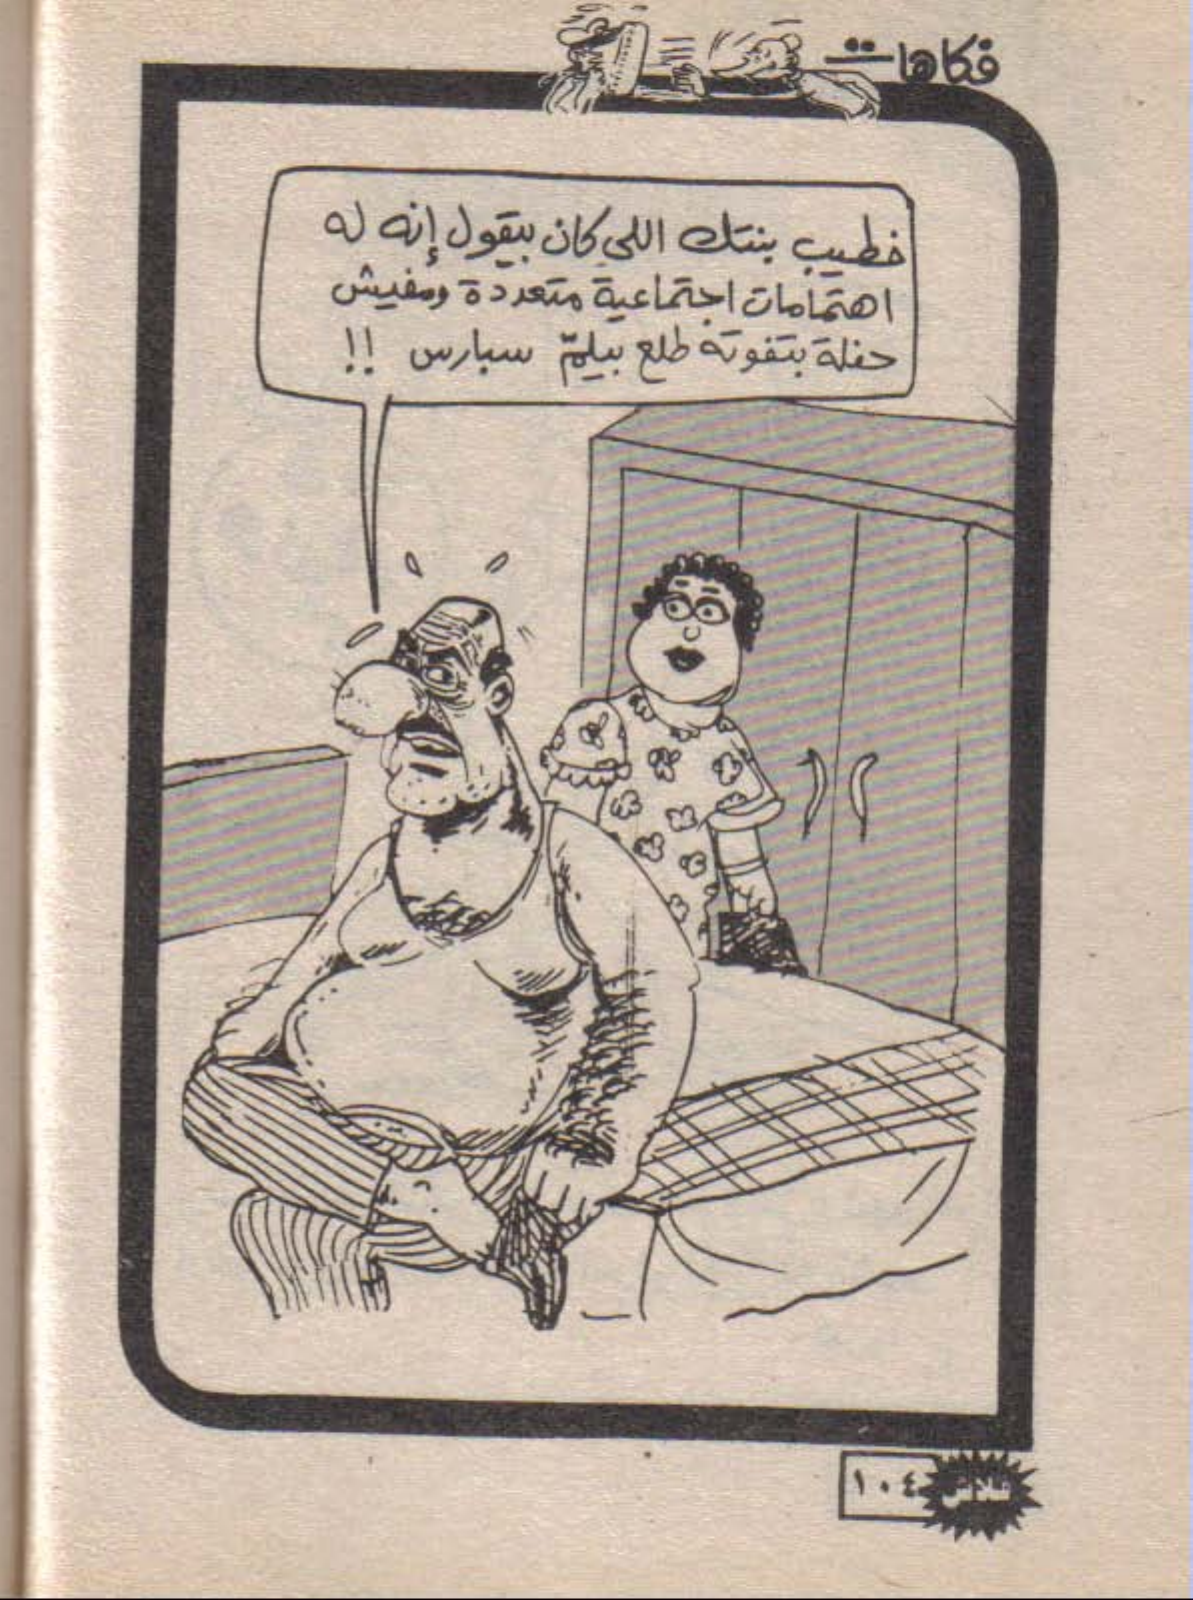 فكاهات
خطيب بنتك اللى كان بيقول إنه له
اهتمامات اجتماعية متعددة ومفيش
حفلة بتفوته طلع بيلمّ سبارس !!
١٠٤